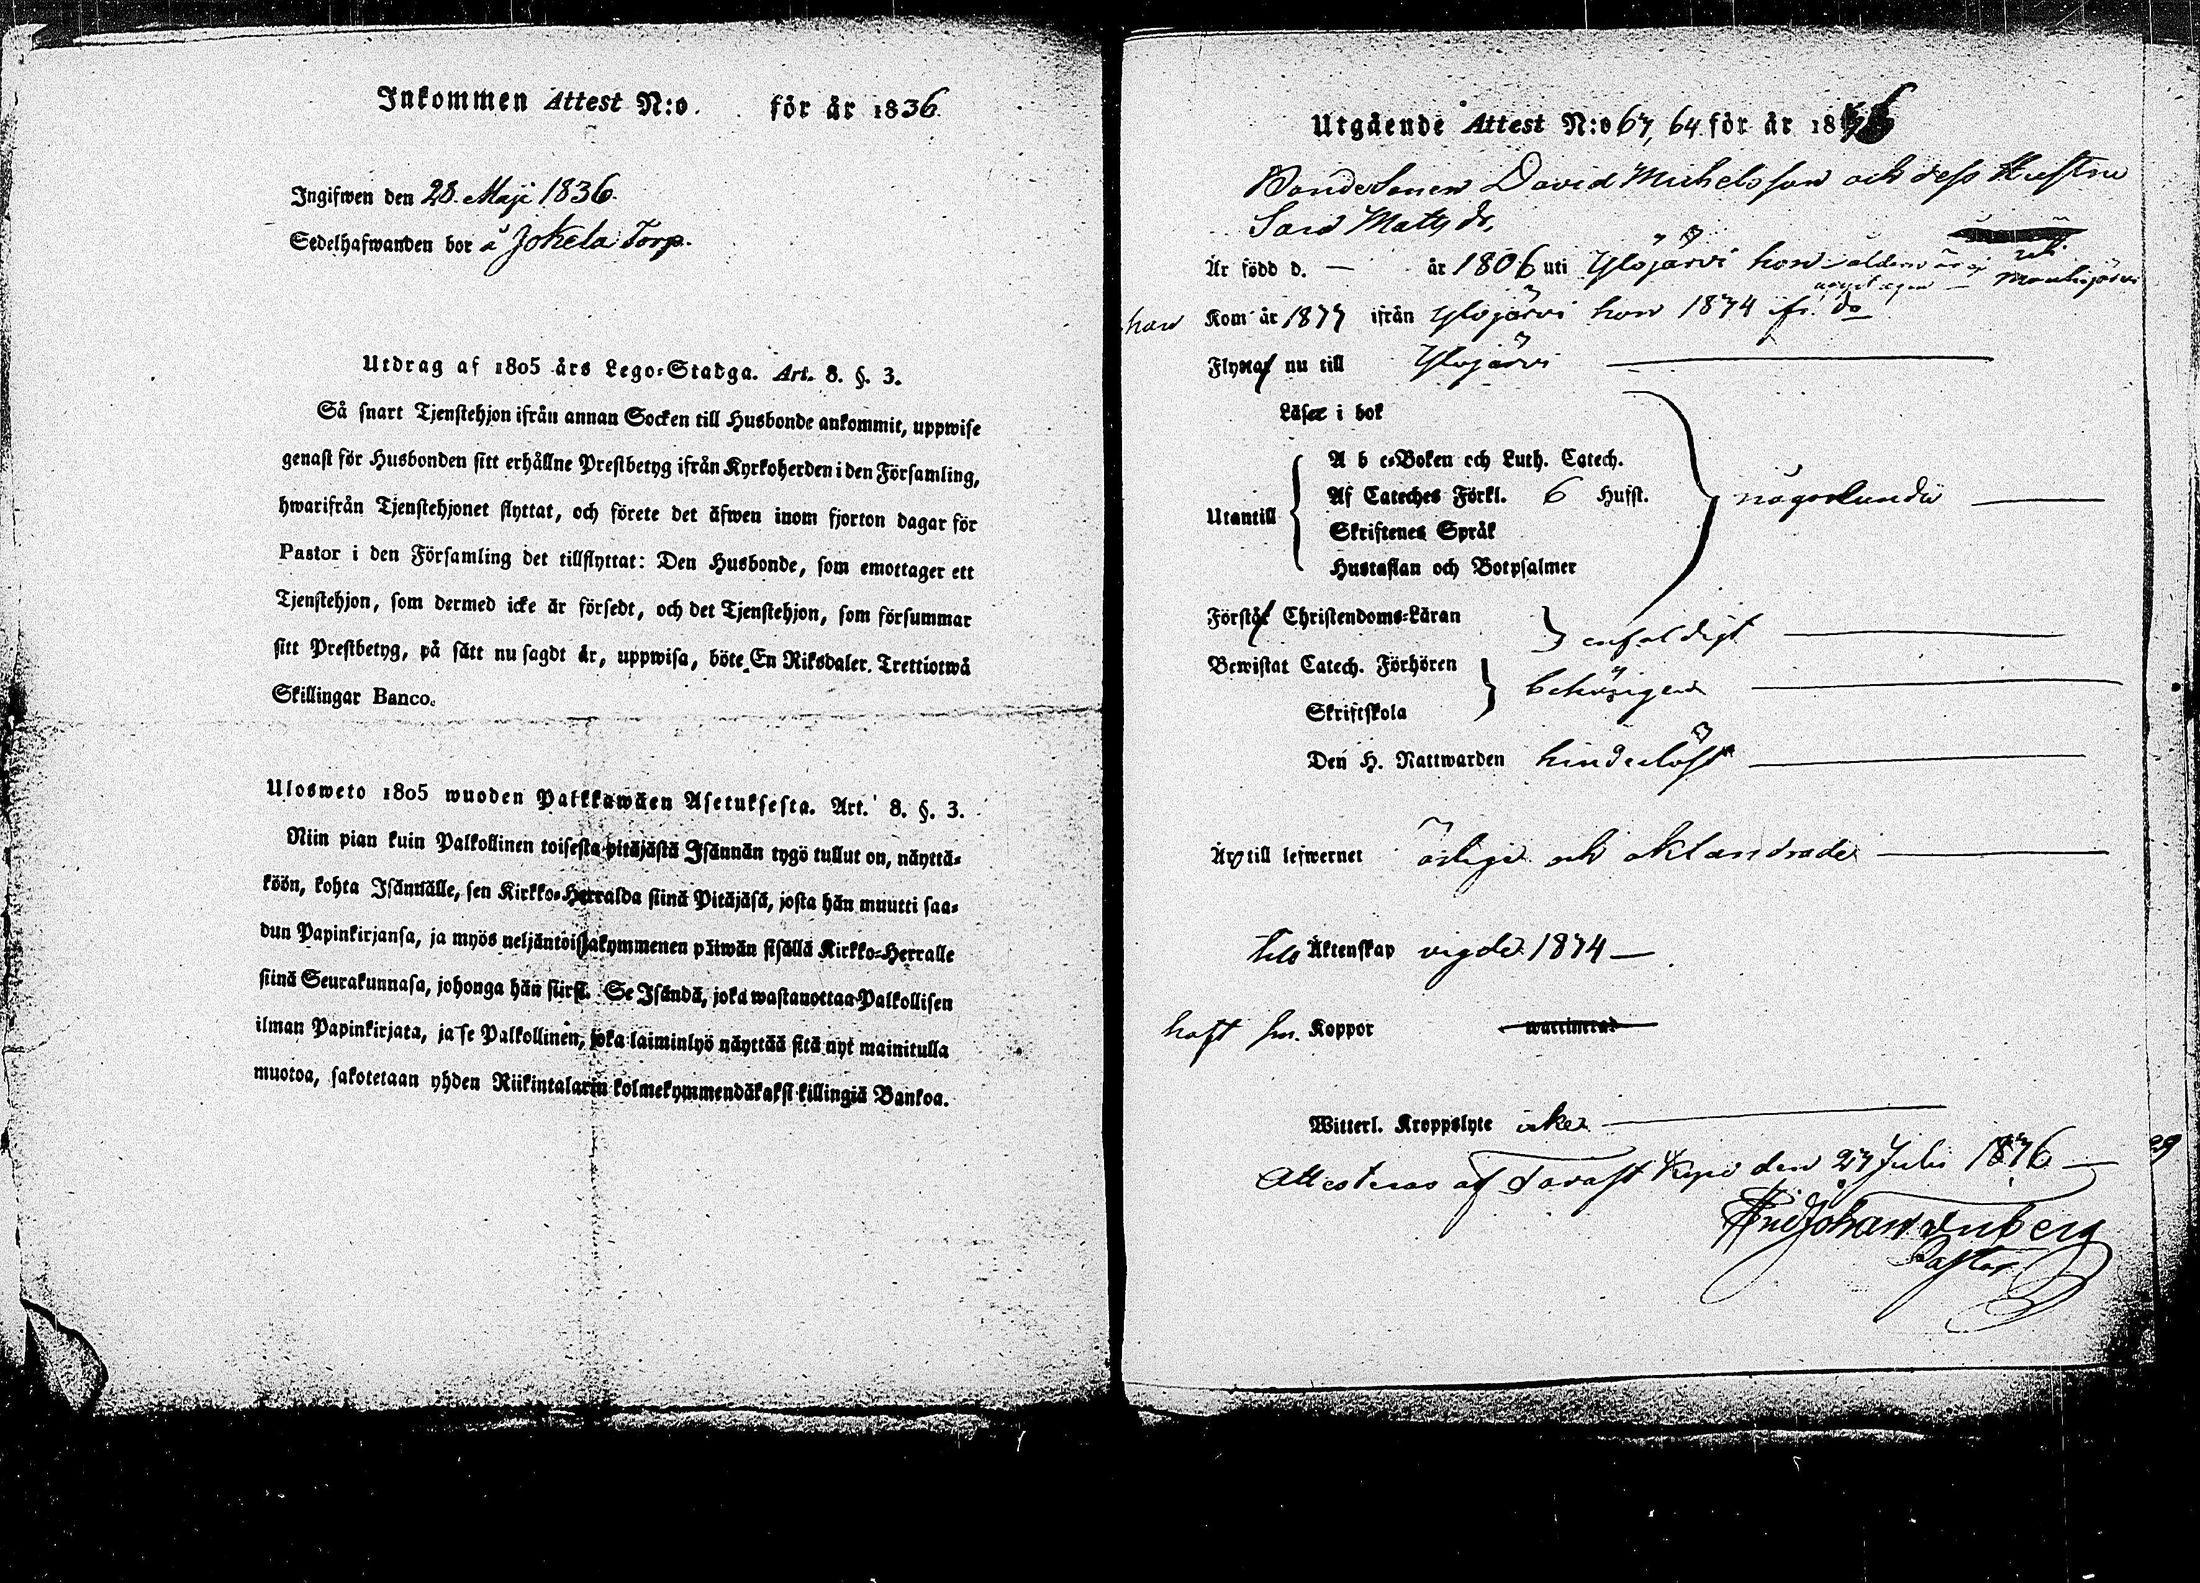 Inkommen Attest N:o. för år 1836.
Ingifwen den 28. Maji 1836.
Sedelhafwanden bor å Jokela Torp.
Utdrag af 1805 års Lego-Stadga. Art. 8. §. 3.
Så snart Tjenstehjon ifrån annan Socken till Husbonde ankommit, uppwise
genast för Husbonden sitt erhållne Prestbetyg ifrån Kyrkoherden i den Församling,
hwarifrån Tjenstehjonet flyttat, och förete det äfwen inom fjorton dagar för
Pastor i den Församling det tillflyttat: Den Husbonde, som emottager ett
Tjenstehjon, som dermed icke är försedt, och det Tjenstehjon, som försummar
sitt Prestbetyg, på sätt nu sagdt är, uppwisa, böte En Riksdaler Trettiotwå
Skillingar Banco.
Ulosweto 1805 wuoden Palkkawäen Asetuksesta. Art. 8. §. 3.
Niin pian kuin Palkollinen toisesta pitäjästä Isännän tygö tullut on, näyttä-
köön, kohta Isännälle, sen Kirkko-Herralda siinä Pitäjäsä, josta hän muutti saa-
dun Papinkirjansa, ja myös neljäntoistakymmenen päiwän sisällä Kirkko-Herralle
siinä Seurakunnasa, johonga hän siirsi. Se Isändä, joka wastanottaa Palkollisen
ilman Papinkirjata, ja se Palkollinen, joka laiminlyö näyttää sitä nyt mainitulla
muotoa, sakotetaan yhden Riikintalarin kolmekymmendäkaksi killingiä Bankoa.
Utgående Attest N:o 67, 64 för år 18
Bondesonen David Michelsson och dess Hustru
Sara Matts dr.
Är född d. — år 1806 uti Ylöjärvi hon åldern är ej
uti Mouhijärvi
han Kom år 1877 ifrån Ylöjärvi hon 1874 ifr. do
Flytta nu till Ylöjärvi
Läsa i bok
A b c-Boken och Luth. Catech.
Af Cateches Förkl. 6 Hufst. någorlunda
Utantill
Skriftenes Språk
Hustaflan och Botpsalmer
Förstå Christendoms-Läran
enfaldigt
Bewistat Catech. Förhören
behörigen
Skriftskola
Den H. Nattwarden hinderlöst
Äro till lefwernet ärlige och oklandrade
till Äktenskap vigde 1874 —
haft Koppor waccinerad
Witterl. Kroppslyte icke
Attesteras af Tavastkyrö den 27 Juli 1876 —
Pastor